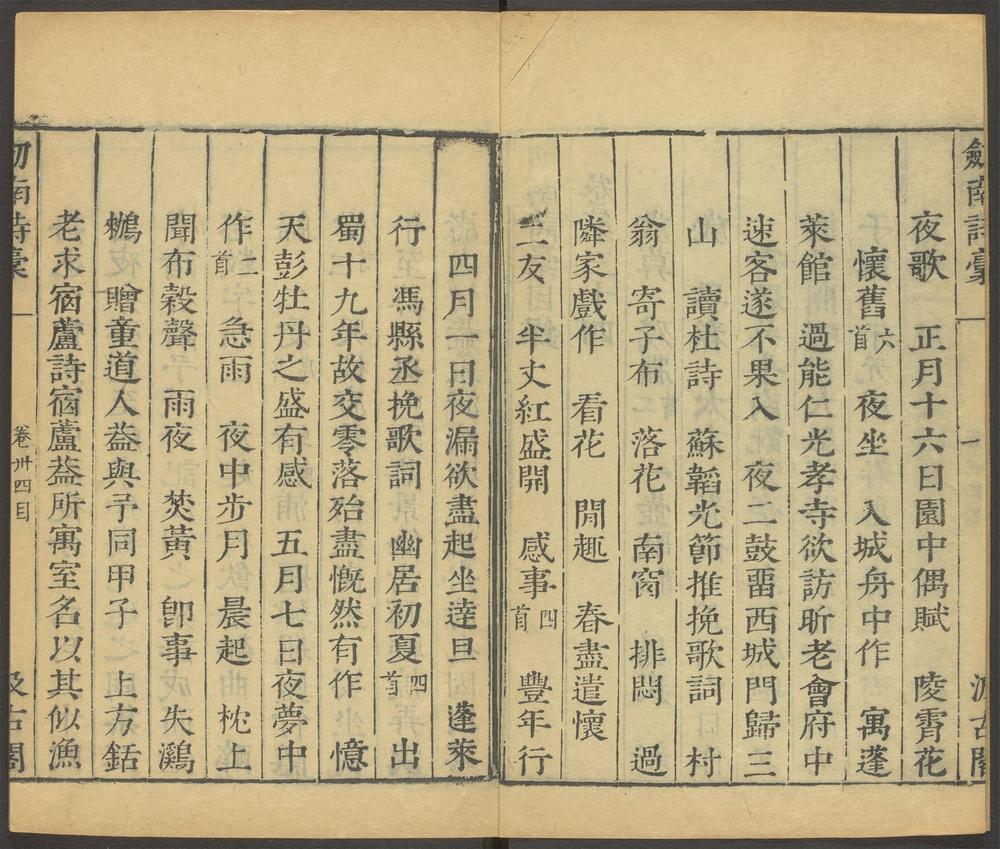 劔南詩稾 一 汲古閣
夜歌 正月十六日園中偶賦 陵霄花
懷舊六首 夜坐 入城舟中作 寓蓬
萊館 過能仁光孝寺欲訪昕老會府中
速客遂不果入 夜二鼓畱西城門歸三
山 讀杜詩 蘇韜光節推挽歌詞 村
翁 寄子布 落花 南窗 排悶 過
隣家戲作 看花 閒趣 春盡遣懷
二友 半丈紅盛開 感事四首 豐年行
四月一日夜漏欲盡起坐達旦 蓬萊
行 馮縣丞挽歌詞 幽居初夏四首 出
蜀十九年故交零落殆盡慨然有作 憶
天彭牡丹之盛有感 五月七日夜夢中
作二首 急雨 夜中步月 晨起 枕上
聞布穀聲 雨夜 焚黃 卽事 失鸂
鷘 贈童道人葢與予同甲子 上方銛
老求宿蘆詩宿蘆葢所寓室名以其似漁
劔南詩稾 一 卷卅四目 汲古閣